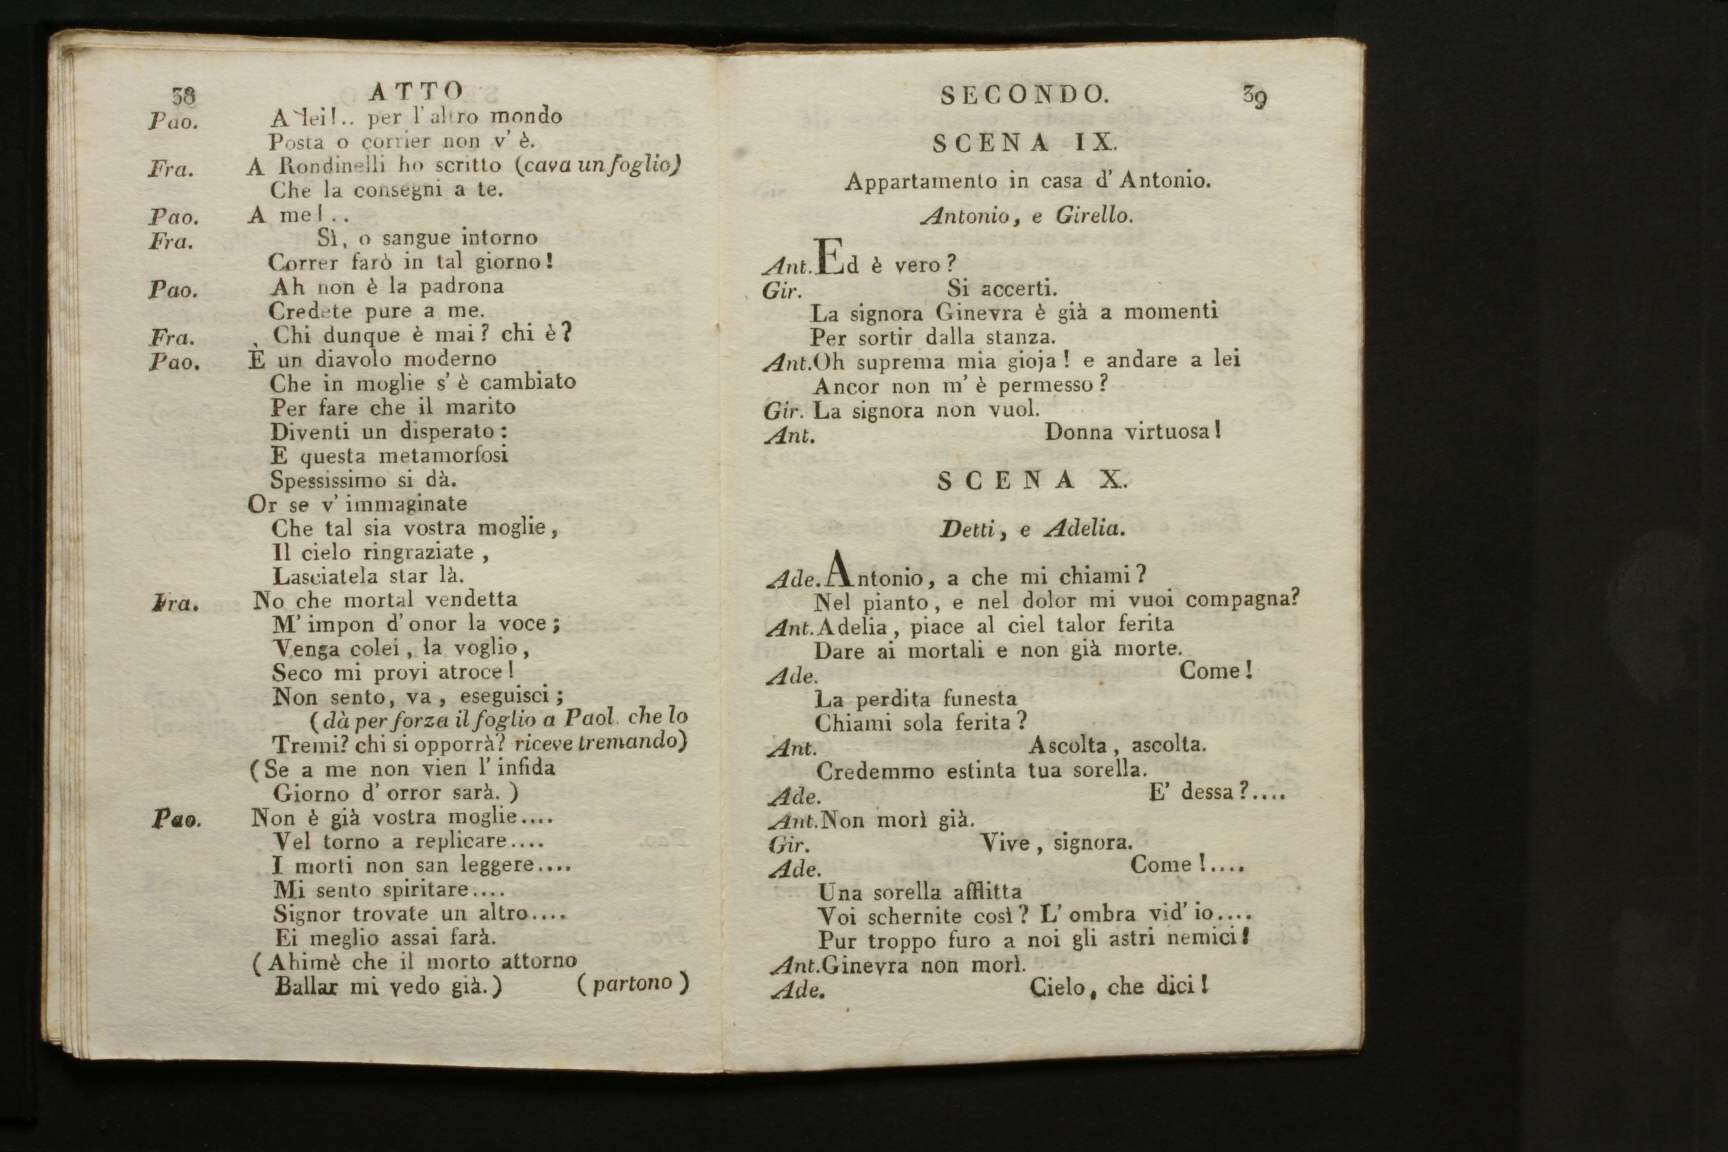 38 ATTO
Pao. A lei!.. per l' altro mondo
Posta o corrier non v' è.
Fra. A Rondinelli ho scritto (cava un foglio)
Che la consegni a te.
Pao. A me!..
Fra. Sì, o sangue intorno
Correr farò in tal giorno!
Pao. Ah non è la padrona
Credete pure a me.
Fra. Chi dunque è mai? chi è?
Pao. È un diavolo moderno
Che in moglie s' è cambiato
Per fare che il marito
Diventi un disperato:
E questa metamorfosi
Spessissimo si dà.
Or se v' immaginate
Che tal sia vostra moglie,
Il cielo ringraziate,
Lasciatela star là.
Fra. No che mortal vendetta
M' impon d' onor la voce;
Venga colei, la voglio,
Seco mi provi atroce!
Non sento, va, eseguisci;
(dà per forza il foglio a Paol. che lo
Tremi? chi si opporrà? riceve tremando)
(Se a me non vien l' infida
Giorno d' orror sarà.)
Pao. Non è già vostra moglie....
Vel torno a replicare....
I morti non san leggere....
Mi sento spiritare....
Signor trovate un altro....
Ei meglio assai farà.
(Ahimè che il morto attorno
Ballar mi vedo già.) (partono)
SECONDO. 39
SCENA IX.
Appartamento in casa d' Antonio.
Antonio, e Girello.
Ant. Ed è vero?
Gir. Si accerti.
La signora Ginevra è già a momenti
Per sortir dalla stanza.
Ant. Oh suprema mia gioja! e andare a lei
Ancor non m' è permesso?
Gir. La signora non vuol.
Ant. Donna virtuosa!
SCENA X.
Detti, e Adelia.
Ade. Antonio, a che mi chiami?
Nel pianto, e nel dolor mi vuoi compagna?
Ant. Adelia, piace al ciel talor ferita
Dare ai mortali e non già morte.
Ade. Come!
La perdita funesta
Chiami sola ferita?
Ant. Ascolta, ascolta.
Credemmo estinta tua sorella.
Ade. E' dessa?....
Ant. Non morì già.
Gir. Vive, signora.
Ade. Come!....
Una sorella afflitta
Voi schernite così? L' ombra vid' io....
Pur troppo furo a noi gli astri nemici!
Ant. Ginevra non morì.
Ade. Cielo, che dici!